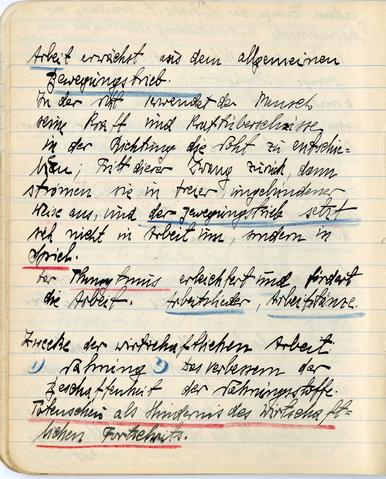 Arbeit erwächst aus dem allgemeinen
Bewegungstrieb.
In der Not verwendet der Mensch
seine Kraft und Kraftüberschüsse
in der Richtung die Not zu entschie-
ben; Tritt dieser Zwang zurück, dann
strömen sie in freier, ungebundener
Weise aus, und der Bewegungstrieb setzt
sich nicht in Arbeit um, sondern in
Spiel.
Der Rhythmus erleichtert und fördert
die Arbeit. Arbeitslieder, Arbeitstänze.
Zwecke der wirtschaftlichen Arbeit
1) Nahrung 2) Das verbessern der
Beschaffenheit der Nahrungsstoffe.
Totenscheu als Hindernis des wirtschaft-
lichen Fortschritts.